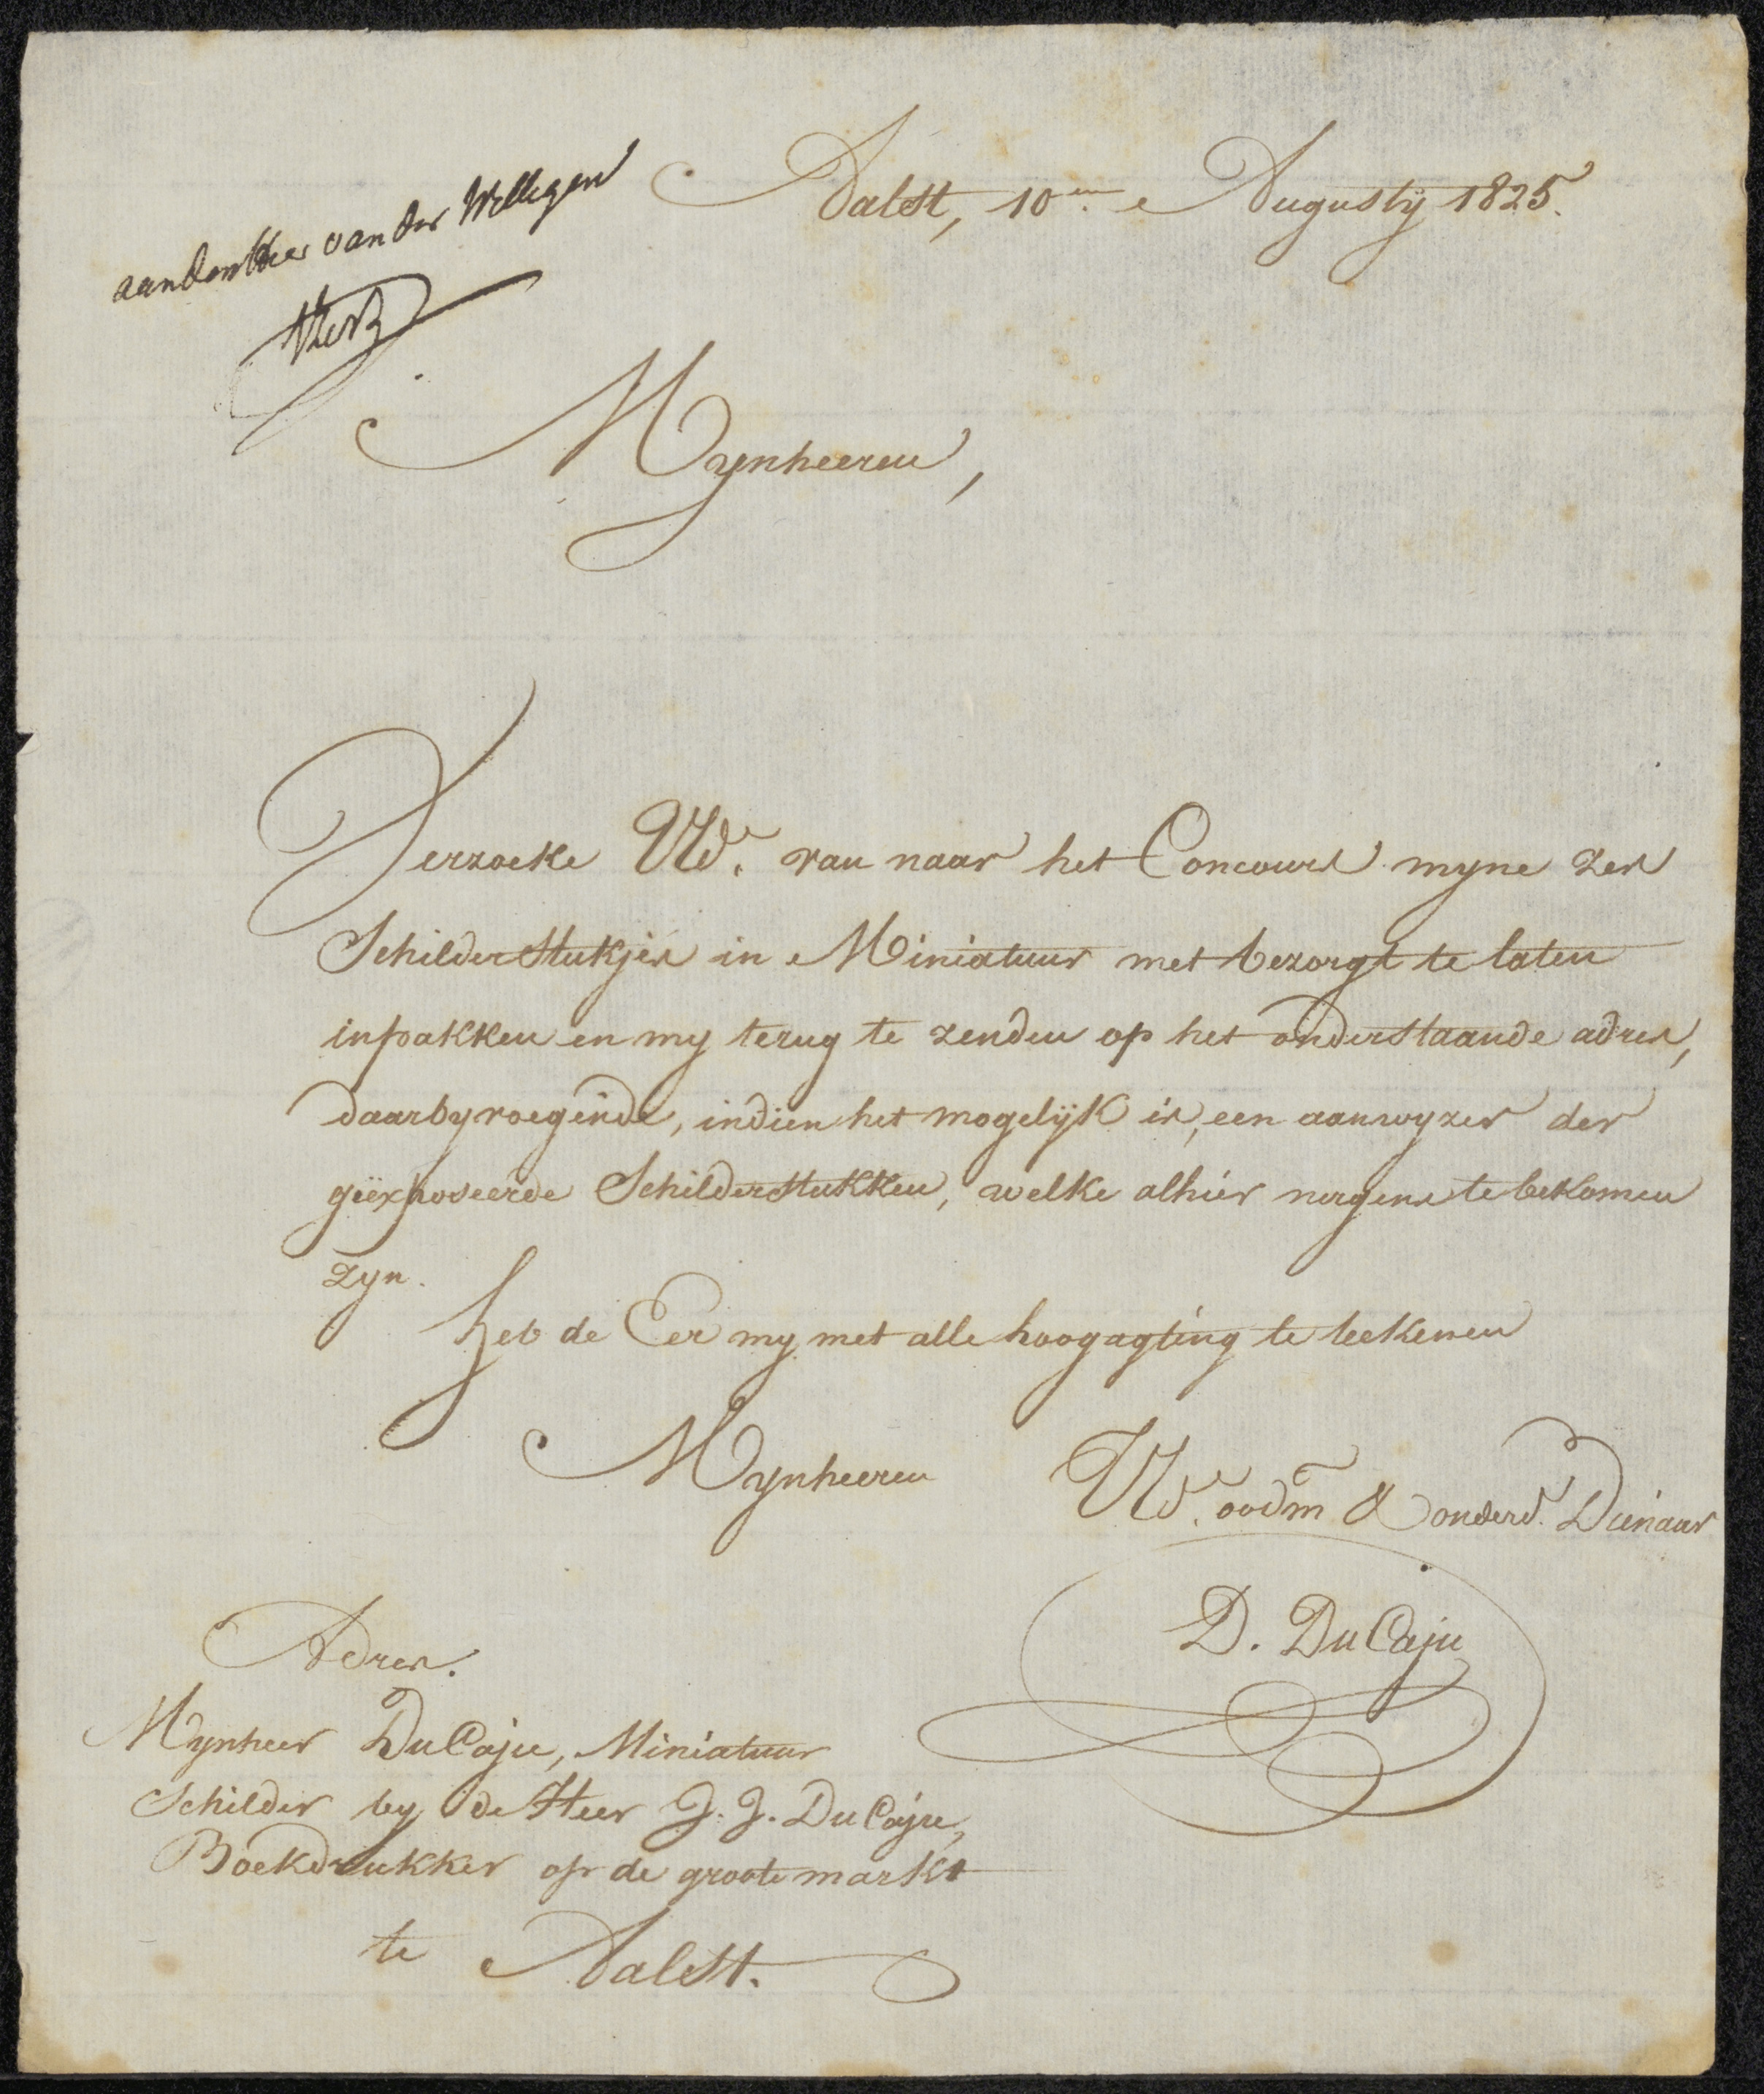 Aalst, 10en. Augusty 1825.
aan den Heer van der Willigen
Mynheeren,
Verzoeke UEd. van naar het Concours myne zes
Schilderstukjes in Miniatuur met bezorgt te laten
inpakken en my terug te zenden op het onderstaande adres,
daarbyvoegende, indien het mogelyk is, een aanwyzer der
geëxposeerde Schilderstukken, welke alhier nergens te bekomen
zyn.
Heb de Eer my met alle hoogagting te teekenen
Mynheeren
UEd. oodm & onderd. Dienaar
D. DuCaju
Adres.
Mynheer DuCaju, Miniatuur
Schilder by de Heer J. J. DuCaju,
Boekdrukker op de groote markt
te Aalst.